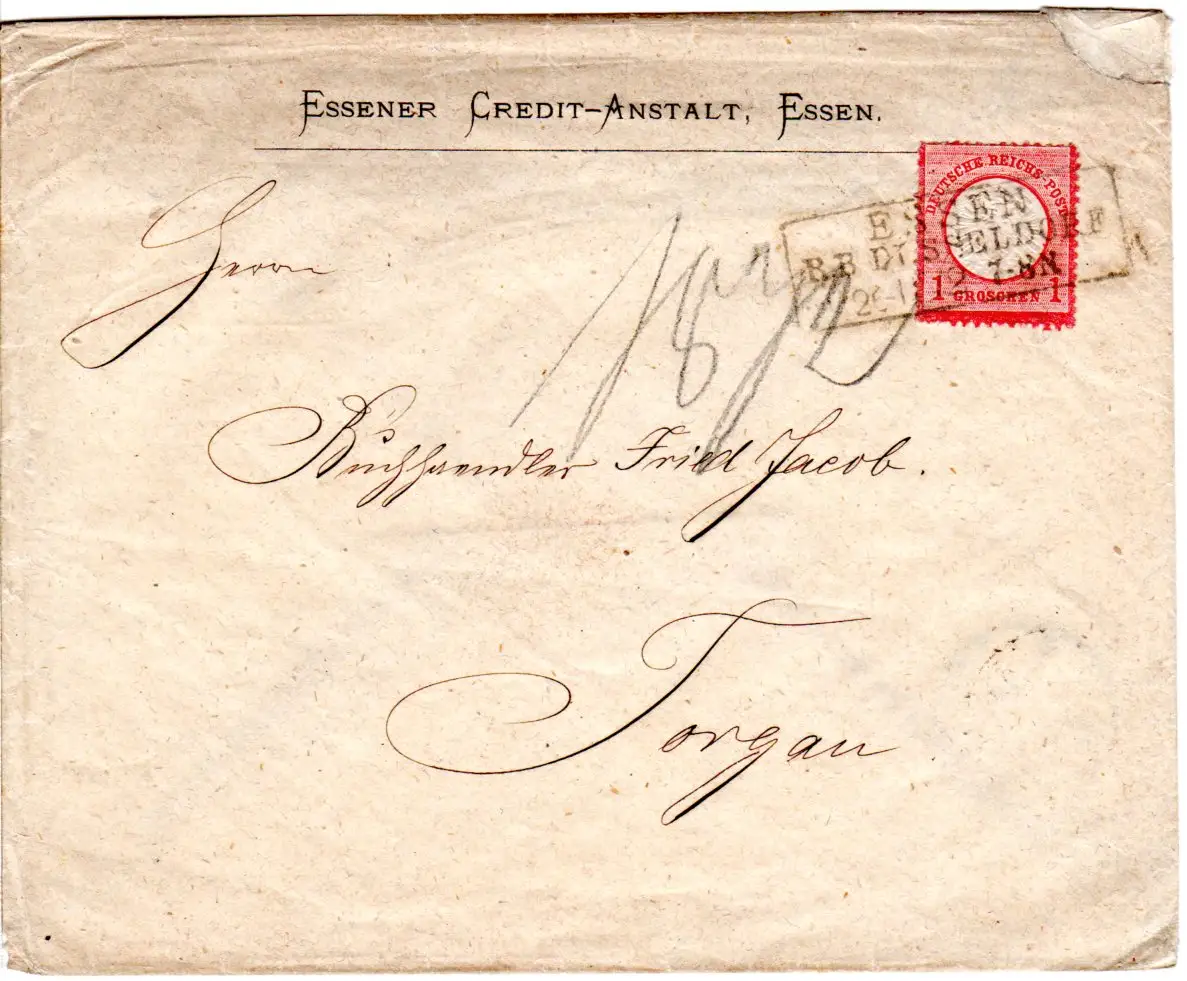 ESSENER CREDIT-ANSTALT, ESSEN.
DEUTSCHE REICHS-POST
1 GROSCHEN 1
ESSEN
R.B DÜSSELDORF
7-8N
Herrn
Buchhaendler Fried Jacob.
Torgau